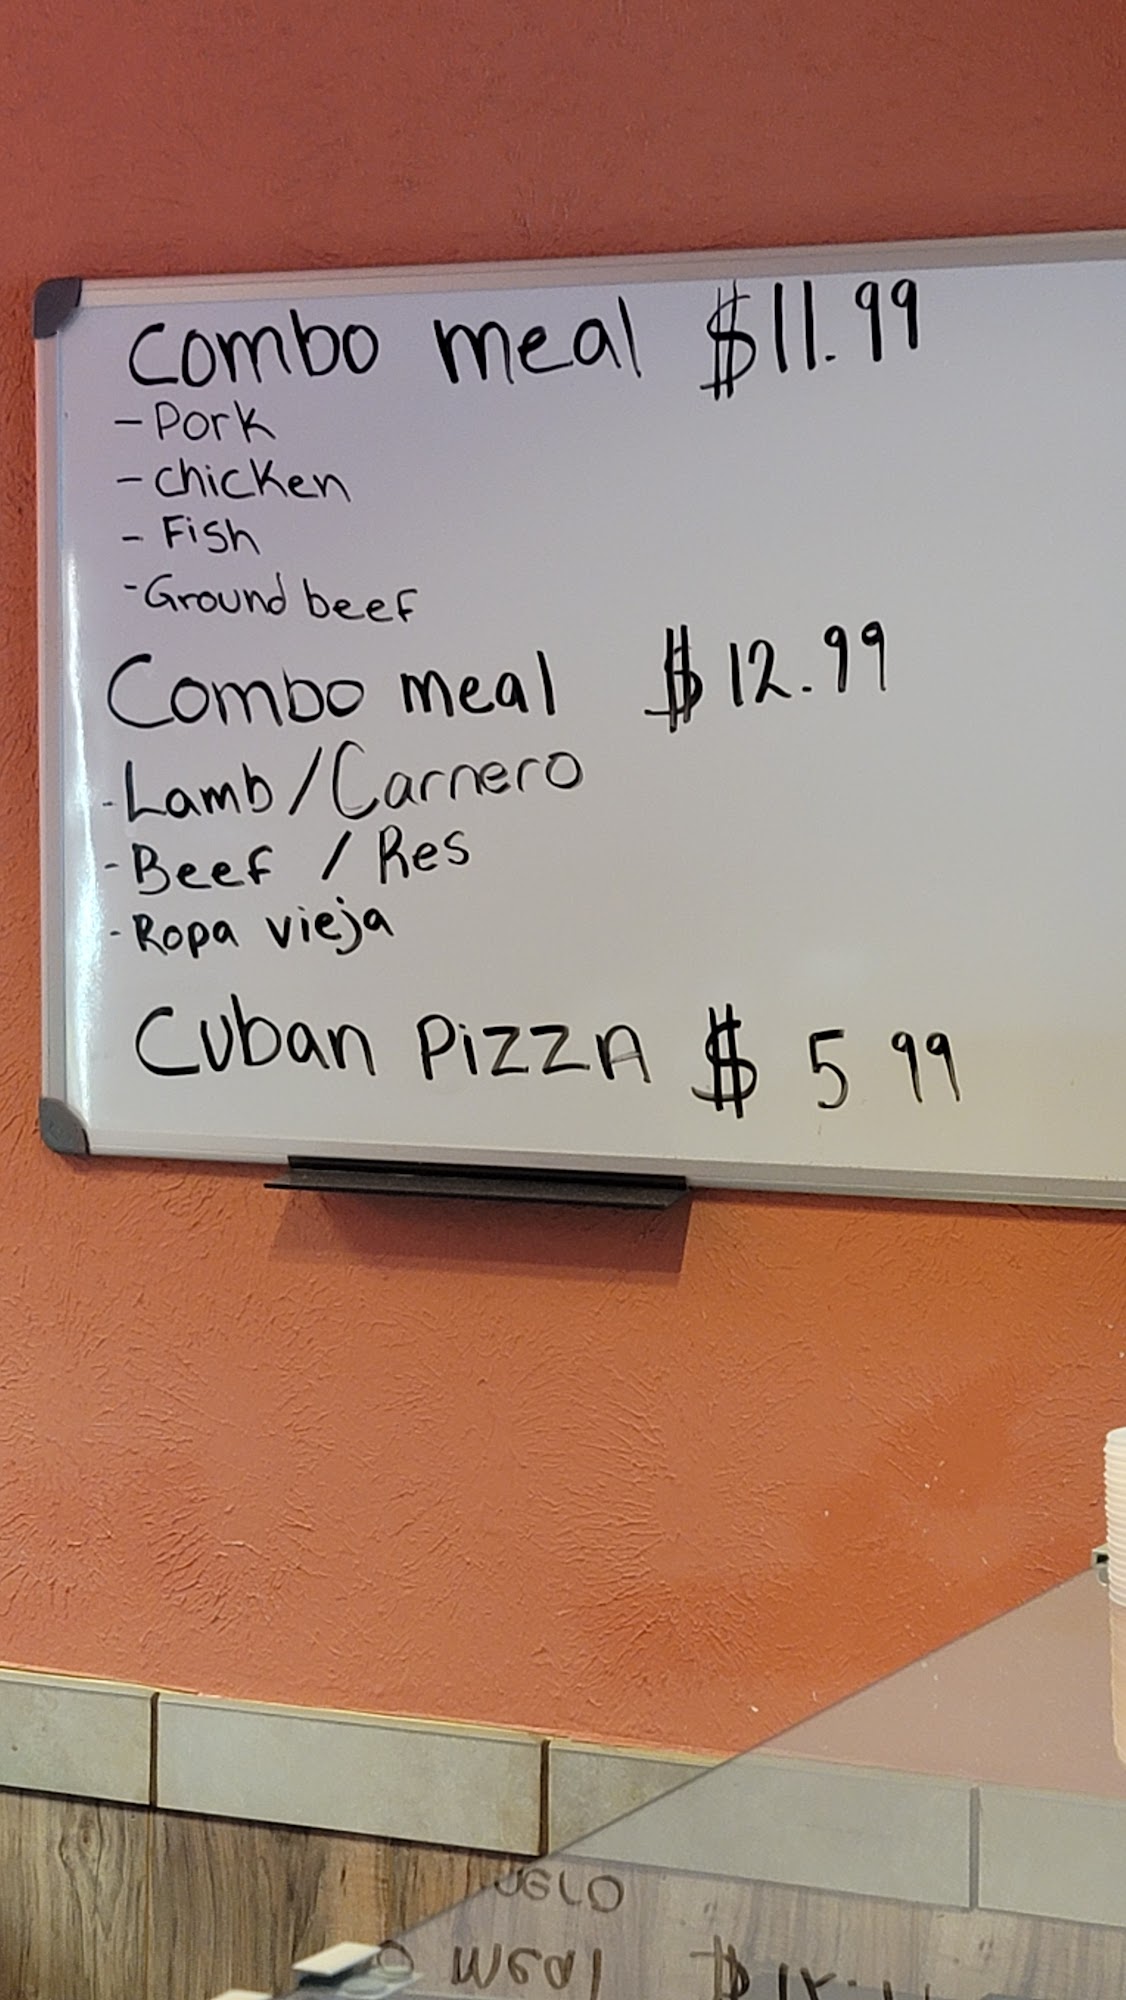 Combo meal $11.99
- Pork
- chicken
- Fish
- Ground beef
Combo meal $12.99
- Lamb/Carnero
- Beef / Res
- Ropa vieja
Cuban PizzA $5 99
nero
meal